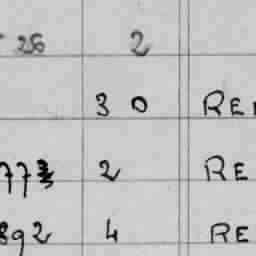 256 2
30 RE
773 2 RE
892 4 RE